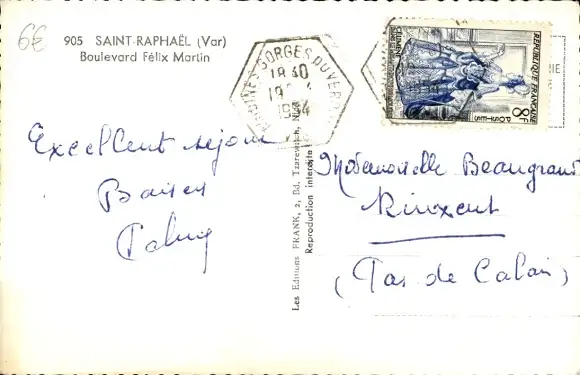 6€
905 SAINT-RAPHAËL (Var)
Boulevard Félix Martin
GORGES DU VERDON
18 30
1954
RÉPUBLIQUE FRANÇAISE
POSTES
8F
Excellent séjour
Baisers
Les Editions FRANK, 2, Bd. Tzarewitch, NICE
Reproduction interdite
Mademoiselle Beaugrand
Rinxent
(Pas de Calais)